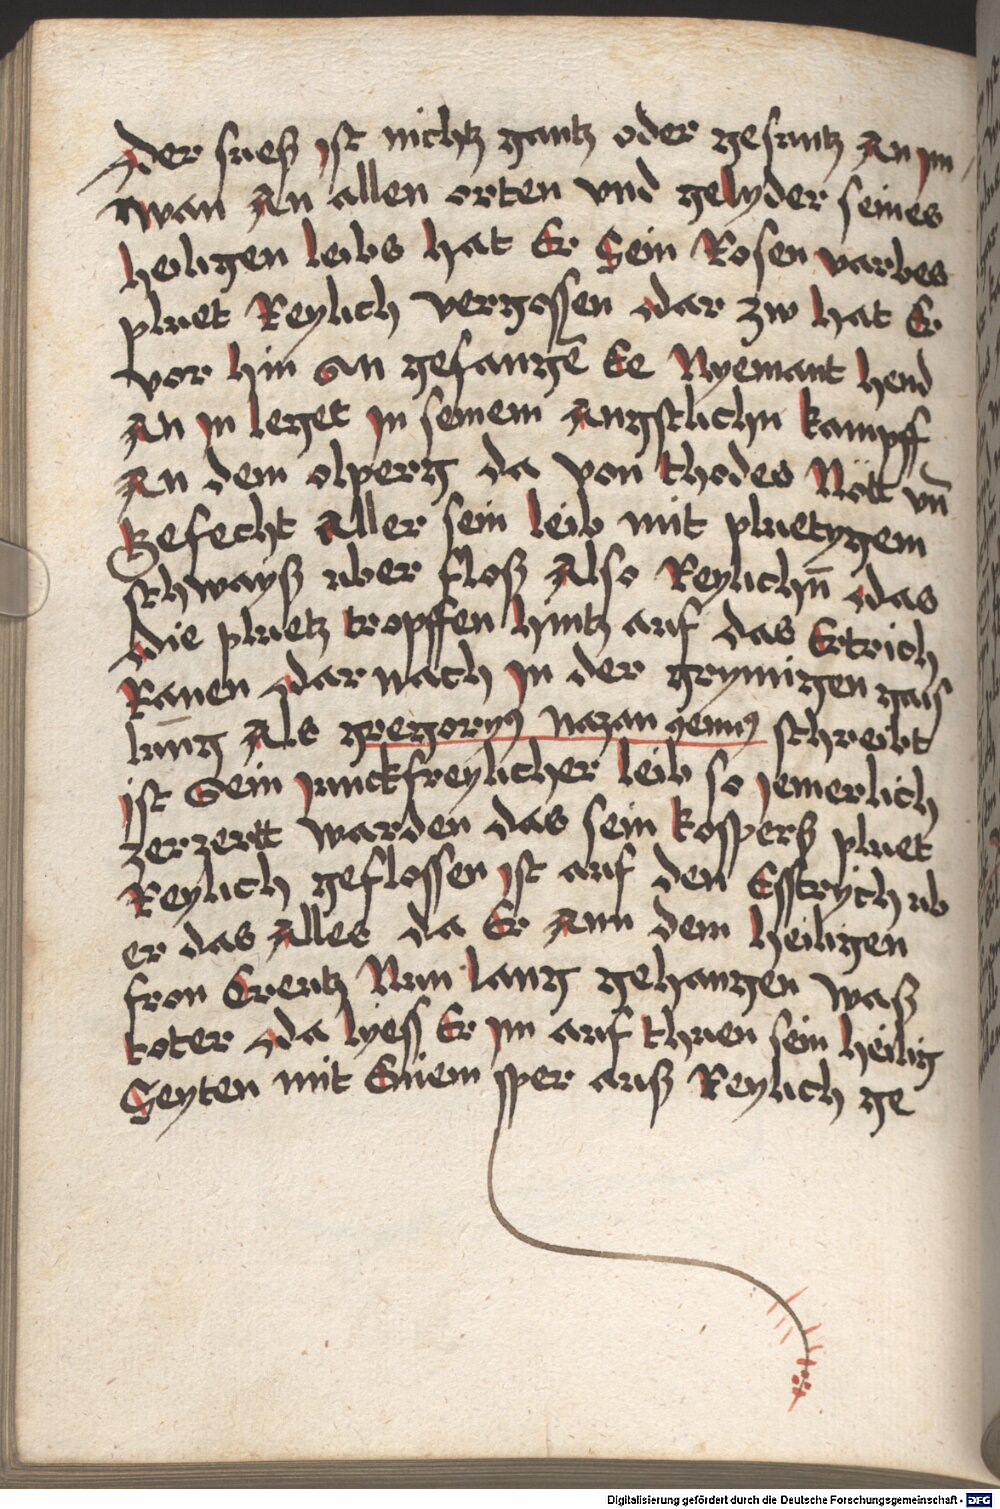 Oder fueß ist nichtz gantz oder gesuntz An im
wan An allen orten vnd gelyder seines
heiligen leibs hat Er Sein Rosen varbes
pluet Reylich vergossen dar zw hat Er
vor hin an gefangē Ee Nyemant hend
An in leget in seinem Angstlichn kampff
An dem olperg da von thodes Nött vn̄
gefecht Aller sein leib mit pluetygem
schwayß uber floß Also Reylichn̄ das
die pluetz tropffen hintz auf das Ertrich
Ranen dar nach in der grymigen gais
lūng Als gregoryꝰ nazanzenuꝰ schreibt
ist Sein iunckfreylicher leib so iemerlich
zerzertt warden das sein kosperß pluet
Reylich geflossen ist auf den Esstrych ub
er das Alles da Er Ann dem heiligen
fron Creutz Nun lang gehangen waß
toter da lyess Er im auf thuen sein heilig
Seyten mit Einem sper auß Reylich ge
Digitalisierung gefördert durch die Deutsche Forschungsgemeinschaft - DFG